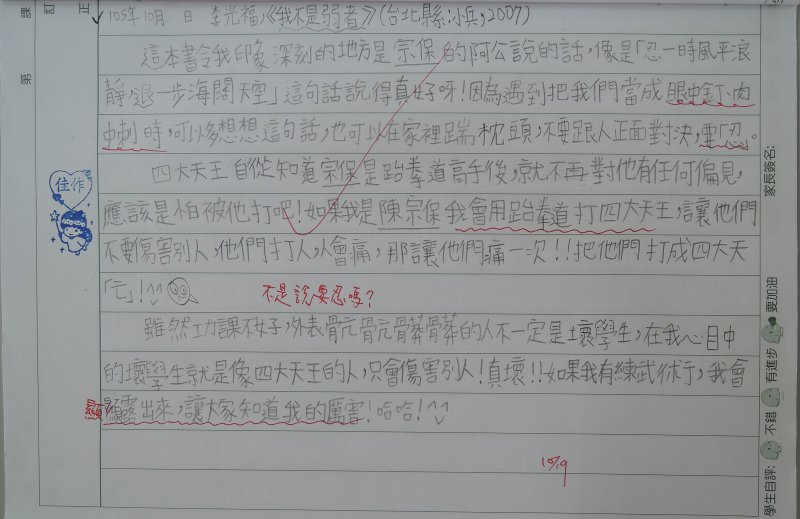 課 訂 正
第
105年10月 日 李光福,《我不是弱者》(台北縣:小兵,2007)
這本書令我印象深刻的地方是宗保的阿公說的話,像是「忍一時風平浪
靜,退一步海闊天空」這句話說得真好呀!因為遇到把我們當成眼中釘、肉
中刺時,可以多想想這句話,也可以在家裡踹枕頭,不要跟人正面對決,要「忍」。
四大天王自從知道宗保是跆拳道高手後,就不再對他有任何偏見,
應該是怕被他打吧!如果我是陳宗保我會用跆拳道打四大天王,讓他們
不要傷害別人,他們打人,人會痛,那讓他們痛一次!!把他們打成四大天
「亡」!^^
不是說要忍嗎?
雖然功課不好,外表骯骯髒髒的人不一定是壞學生,在我心目中
的壞學生就是像四大天王的人,只會傷害別人!真壞!!如果我有練武術行,我會
顯露出來,讓大家知道我的厲害!哈哈!^^
顯
10/19
佳作
家長簽名:
學生自評: 不錯 有進步 要加油